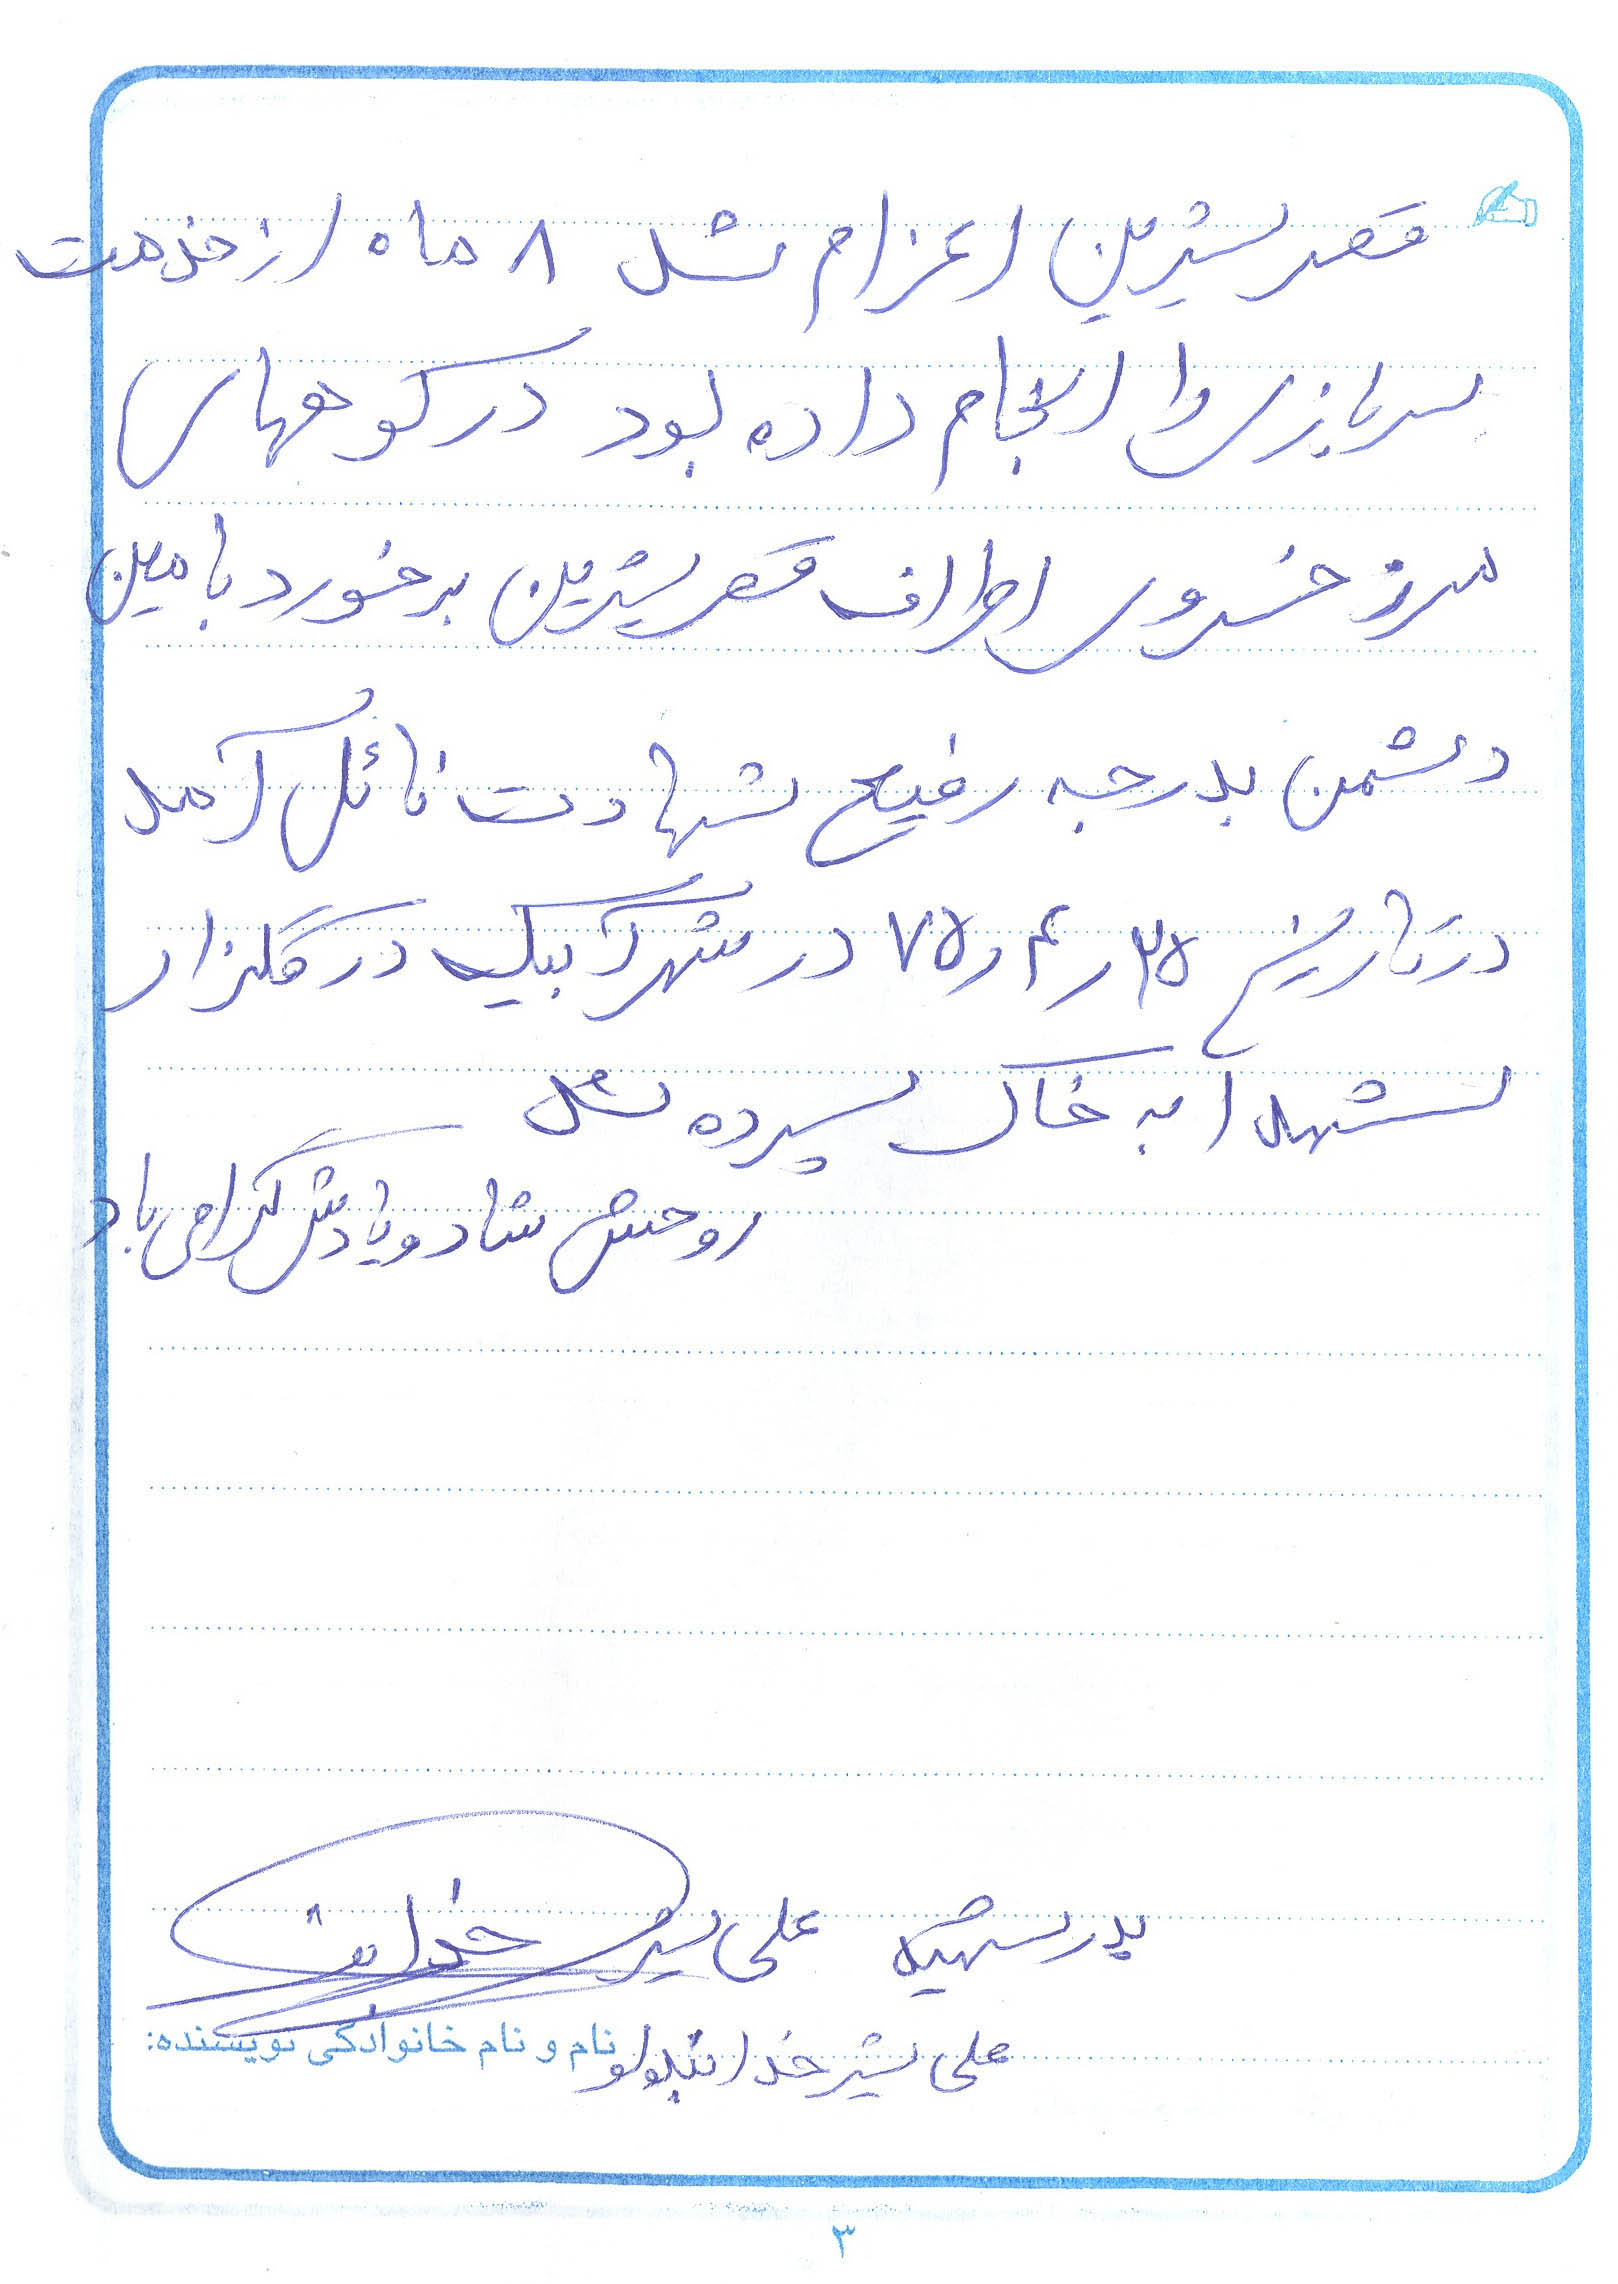 قصر شیرین اعزام شد ۸ ماه از خدمت
سربازی را انجام داده بود در کوههای
مرز خسروی اطراف قصر شیرین برخورد با مین
دشمن بدرجه رفیع شهادت نائل آمد
در تاریخ ۲۵ر۴ر۷۵ در شهر آبیک در گلزار
شهدا به خاک سپرده شد
روحش شاد و یادش گرامی باد
پدر شهید علی شیر
علی شیر خدابنده‌لو
نام و نام خانوادگی نویسنده:
۳